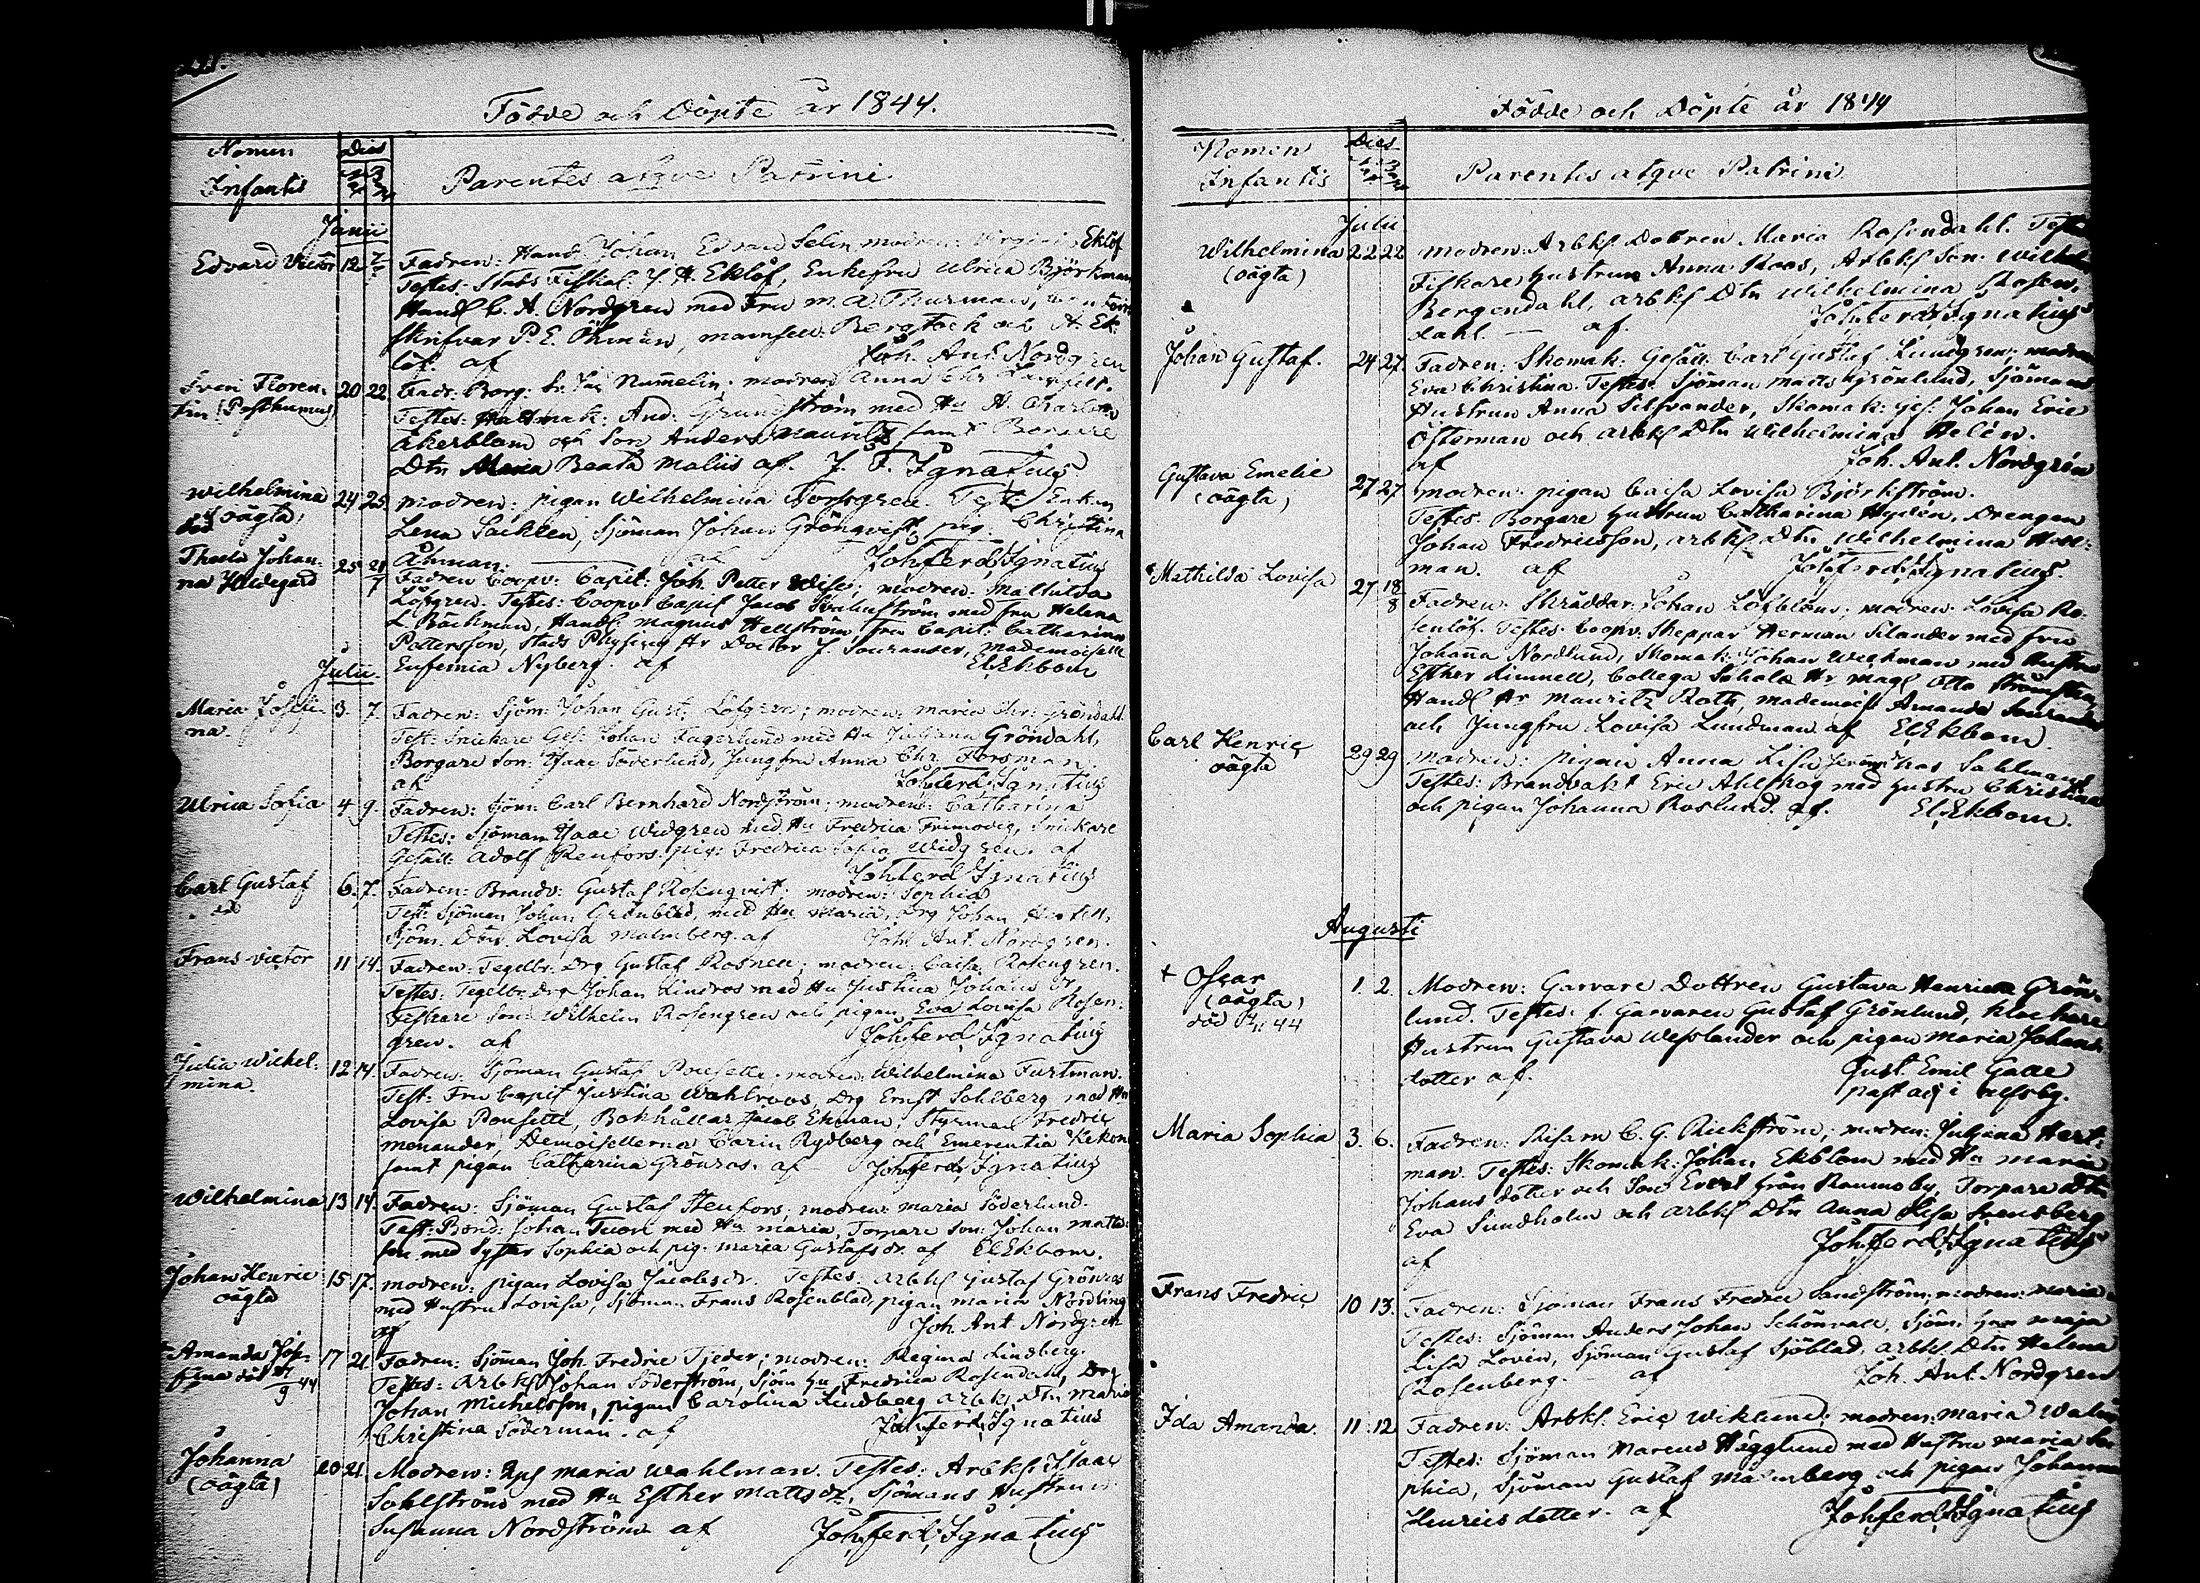 Födde och Döpte år 1844.
Nomen Infantis
Dies
Parentes atqve Patrini
Junii
Edvard Victor 12
Fadren: Handl Johan Edvard Selin modren: Virginia Eklöf
Testes: Stads Fiskal: J. A. Eklöf, Enkefru Ulrica Björkman
Handl C. A. Nordgren med Fru M. A. Thurman,
skrifvar P. E. Öhman, mamsell Bergstock och A. Ek-
löf. af Joh. Ant. Nordgren
Floren-
tin (Posthumus) 20 22
Fadr: Borg: Nummelin. modren Anna Chr.
Testes: Hattmak: And: Grundström med Hu A. Charl.
Åkerblom och Son Anders Mauritz samt Borgare
Dtn Maria Beata Malin af. J. F. Ignatius
Wilhelmina (oägta) död 24 25.
modren: pigan Wilhelmina Forsgren. Teste Enkan
Lena Sacklen, Sjöman Johan Grönqvist pig. Christina
Åhman. af Joh ferd Ignatius
Thecla Johan-
na Hildegard 25 21/7
Fadren Coopv: Capit: Joh. Petter Wise; modren: Mathilda
Löfgren. Testes: Coopv Capit Jacob med fru Helena
L Bäckman, Handl: Magnus Hellström, Fru Capit: Catharina
Pettersson, Stads Physicus Hr Doctor J. Sourander, mademoiselle
Eufemia Nyberg. af El Ekbom
Julii.
Maria Josefi-
na. 3. 7.
Fadren: Sjöm: Johan Gust: Löfgren; modren: maria Chr: Gröndahl
Test: Snickare Ges: Johan Fagerlund med Hu Juliana Gröndahl,
Borgare Son: Isaac Söderlund, Jungfru Anna Chr. Forsman.
af Joh ferd Ignatius
Ulrica Sofia 4 9.
Fadren: Sjöm: Carl Bernhard Nordström; modren: Catharina
Testes: Sjöman Isaac Widgren med Hu Fredrica Frimodig, Snickare
Gesäll: Adolf Renfors. pig: Fredrica Sofia Widgren. af
Joh ferd Ignatius
Carl Gustaf 6. 7.
Fadren: Brandv: Gustaf Rosenqvist; modren: Sophia
Test: Sjöman Johan Grönblad, med Hu Maria, Drg Johan
Sjöm: Dtn Lovisa Malmberg. af Joh Ant. Nordgren.
Frans Victor 11 14.
Fadren: Tegelbr: Drg Gustaf Rosnell; modren: Caisa Rosengren.
Testes: Tegelbr: Drg Johan Lindros med Hu Justina Johans dr
Fiskare Son: Wilhelm Rosengren och pigan Eva Lovisa Rosen-
gren. af Joh ferd Ignatius
Julia Wilhel-
mina. 12 14.
Fadren: Sjöman Gustaf Pousette; modren: Wilhelmina Furtman.
Test: Fru Capit Justina Wahlroos, Drg Ernst Sohlberg med Hu
Lovisa Pousette, Bokhållar Jacob Ekman, Styrman Fredric
Menander, Demoisellerna Carin Rydberg och Emerentia Kekon
samt pigan Catharina Grönros. af Joh ferd Ignatius
Wilhelmina 13 14.
Fadren: Sjöman Gustaf Stenfors; modren: maria Söderlund.
Test: Bond: Johan Tuori med Hu maria, Torpare Son: Johan Matts-
son med Syster Sophia och pig. maria Gustafs dr. af El Ekbom.
Johan Henric
oägta 15 17.
modren: pigan Lovisa Jacobs dr. Testes: Arbkl Gustaf Grönros
med Hustru Lovisa, Sjöman Frans Rosenblad, pigan maria Nordling
af Joh. Ant Nordgren
Amanda Jos-
fina död /9 44 17 21.
Fadren: Sjöman Joh. Fredric Tjeder; modren: Regina Lindberg.
Testes: Arbkl Johan Söderström, Sjöm Hu Fredrica Rosendahl, Drg
Johan Michelsson, pigan Carolina Lindberg Arbk. Dtn Maria
Christina Söderman. af Joh ferd Ignatius
Johanna
(oägta) 20 21.
Modren: maria Wahlman. Testes: Arbkl Isaac
Sohlström med Hu Esther Matts dr, Sjömans Hustrun
Susanna Nordström af Joh ferd Ignatius
Födde och Döpte år 1844
Nomen Infantis
Dies
Parentes atqve Patrini
Julii
Wilhelmina
(oägta) 22 22
modren: Arbkl Dottren Maria Rosendahl. Teste
Fiskare Hustrun Anna Roos, Arbkl Son: Wilhelm
Bergendahl, arbkl Dtn Wilhelmina Rosen-
dahl. af. Joh ferd Ignatius
Johan Gustaf. 24 27.
Fadren: Skomak: Gesäll Carl Gustaf Lundgren; modren
Eva Christina. Testes: Sjöman Matts Grönlund, Sjömans
Hustrun Anna Silfvander, Skomak: ges: Johan Eric
Österman och arbkl Dtn Wilhelmina Helén.
af Joh. Ant. Nordgren
Gustava Emelie
(oägta) 27 27
modren: pigan Caisa Lovisa Björkström.
Testes: Borgare Hustrun Catharina Hydén, Drengen
Johan Fredricsson, arbkl Dtn Wilhelmina
man. af Joh ferd Ignatius.
Mathilda Lovisa 27 18/8
Fadren: Skräddar: Johan Löfblom; modren: Lovisa Ro-
senlöf. Testes: Coopv: Skeppar Herman Silander med fru
Johanna Nordlund, Skomak: Johan Weckman med Hustru
Esther Limnell, Collega Schola Hr Mag Otto
Handl Hr Mauritz Roth, mademoisl Amanda Sourander
och Jungfru Lovisa Lundman af El Ekbom
Carl Henric
oägta 29 29
modren: pigan Anna Lisa Sahlman
Testes: Brandvakt Eric Ahlskog med Hustru Christina
och pigan Johanna Roslund. af. El Ekbom.
Augusti
+ Oscar
(oägta)
död 44 1. 2.
Modren: Garvare Dottren Gustava Henrica Grön-
lund. Testes: f. Garvaren Gustaf Grönlund, Klockare
Hustrun Gustava Wesslander och pigan Maria Johans-
dotter af. Gust. Emil Gade
past adj i
Maria Sophia 3. 6.
Fadren: C. G. Rickström; modren: Juliana Hart-
man. Testes: Skomak: Johan Ekblom med Hu maria
Johans dotter och Son Evert från Raumo by, Torpare Dtn
Eva Sundholm och arbkl Dtn Anna Lisa Svensberg
af Joh ferd Ignatius
Frans Fredric 10 13.
Fadren: Sjöman Frans Fredric Sandström; modren: Maria
Testes: Sjöman Anders Johan Schönvall, Sjöm: Hu maja
Lisa Lovén, Sjöman Gustaf Sjöblad, arbkl Dtn Helena
Rosenberg. af Joh. Ant. Nordgren
Ida Amanda. 11 12
Fadren: Arbkl. Eric Wiklund; modren: Maria
Testes: Sjöman Marcus Hägglund med Hustru Maria So-
phia, Sjöman Gustaf Malmberg och pigan Johanna
Henrics dotter. af Joh ferd Ignatius